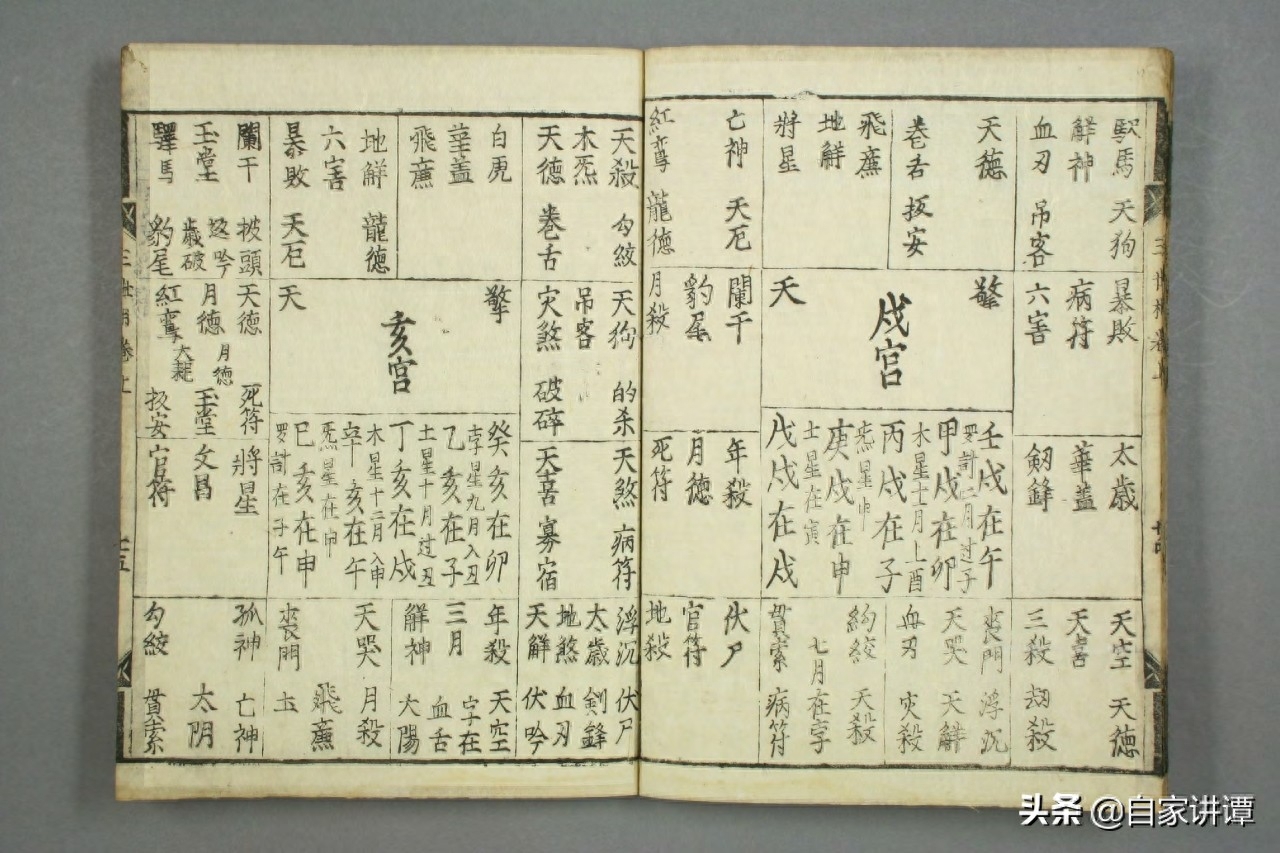 馹馬 天狗
解神
血刃 吊客
天德
卷舌 扳安
飛廉
地解
將星
亡神 天厄
紅鸞 龍德
暴敗
病符
六害
擎
戌宮
天
闌干
豹尾
月殺
太歲
華盖
劔鋒
壬戌在午
罗計二月过子
甲戌在卯
木星十一月上酉
丙戌在子
炁星申
庚戌在申
土星在寅
戊戌在戌
年殺
月德
死符
天空 天德
天喜
三殺 刼殺
丧門 浮沉
天哭 天解
血刃 灾殺
約絞 天殺
七月在字
貫索 病符
伏尸
官符
地殺
三世相卷上
廿四
天殺 勾絞
木炁
天德 卷舌
白虎
華盖
飛廉
地解 龍德
六害
暴敗 天厄
闌干 披頭
玉堂 返吟
歲破
驛馬 豹尾
天狗 的杀
吊客
灾煞 破碎
擎
亥宮
天
天德
月德
紅鸞
月德
大耗
死符
玉堂
扳安
天煞 病符
天喜 寡宿
癸亥在卯
孛星九月入丑
乙亥在子
土星十月过丑
丁亥在戌
木星十二月入申
辛亥在午
炁星在申
巳亥在申
罗計在子午
將星
文昌
官符
浮沉 伏尸
太歲 劍鋒
地煞 血刃
天解 伏吟
年殺 天空
三月 字在
解神 血舌
大陽
天哭 月殺
飛廉
丧門 玉
孤神 亡神
太阴
勾絞 貫索
三世相卷上
廿五
头条 @自家讲谭